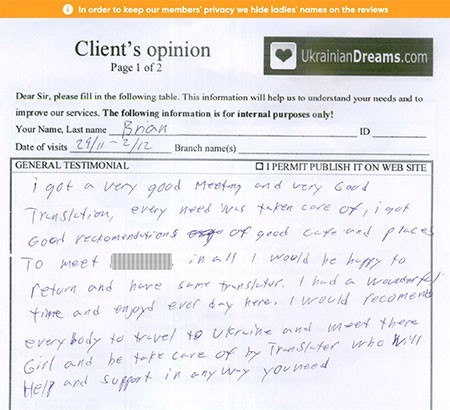 i In order to keep our members' privacy we hide ladies' names on the reviews
Client's opinion
Page 1 of 2
UkrainianDreams.com
Dear Sir, please fill in the following table. This information will help us to understand your needs and to
improve our services. The following information is for internal purposes only!
Your Name, Last name Brian ID
Date of visits 29/11 - 2/12 Branch name(s)
GENERAL TESTIMONIAL ☐ I PERMIT PUBLISH IT ON WEB SITE
i got a very good Meeting and very Good
Translation, every need was taken care of, i got
Good reckomendations of good cafe and places
To meet in all I would be happy to
return and have same translator. I had a wounderful
time and enjoyd ever day here. I would recomend
everybody to travel to Ukraine and meet there
Girl and be take care of by Translater who Will
Help and support in any way you need